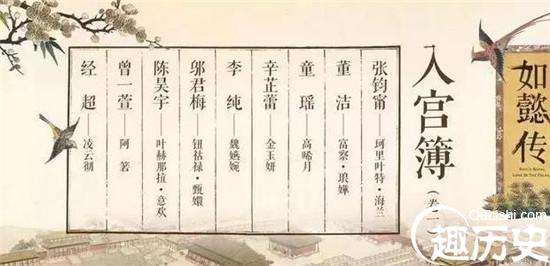 如懿传
RUYI'S ROYAL
LOVE IN THE PALACE
入宫簿
(卷
张钧甯 珂里叶特·海兰
董洁 富察·琅嬅
童瑶 高晞月
辛芷蕾 金玉妍
李纯 魏嬿婉
邬君梅 钮祜禄·甄嬛
陈昊宇 叶赫那拉·意欢
曾一萱 阿箬
经超 凌云彻
Qulishi.com
趣历史